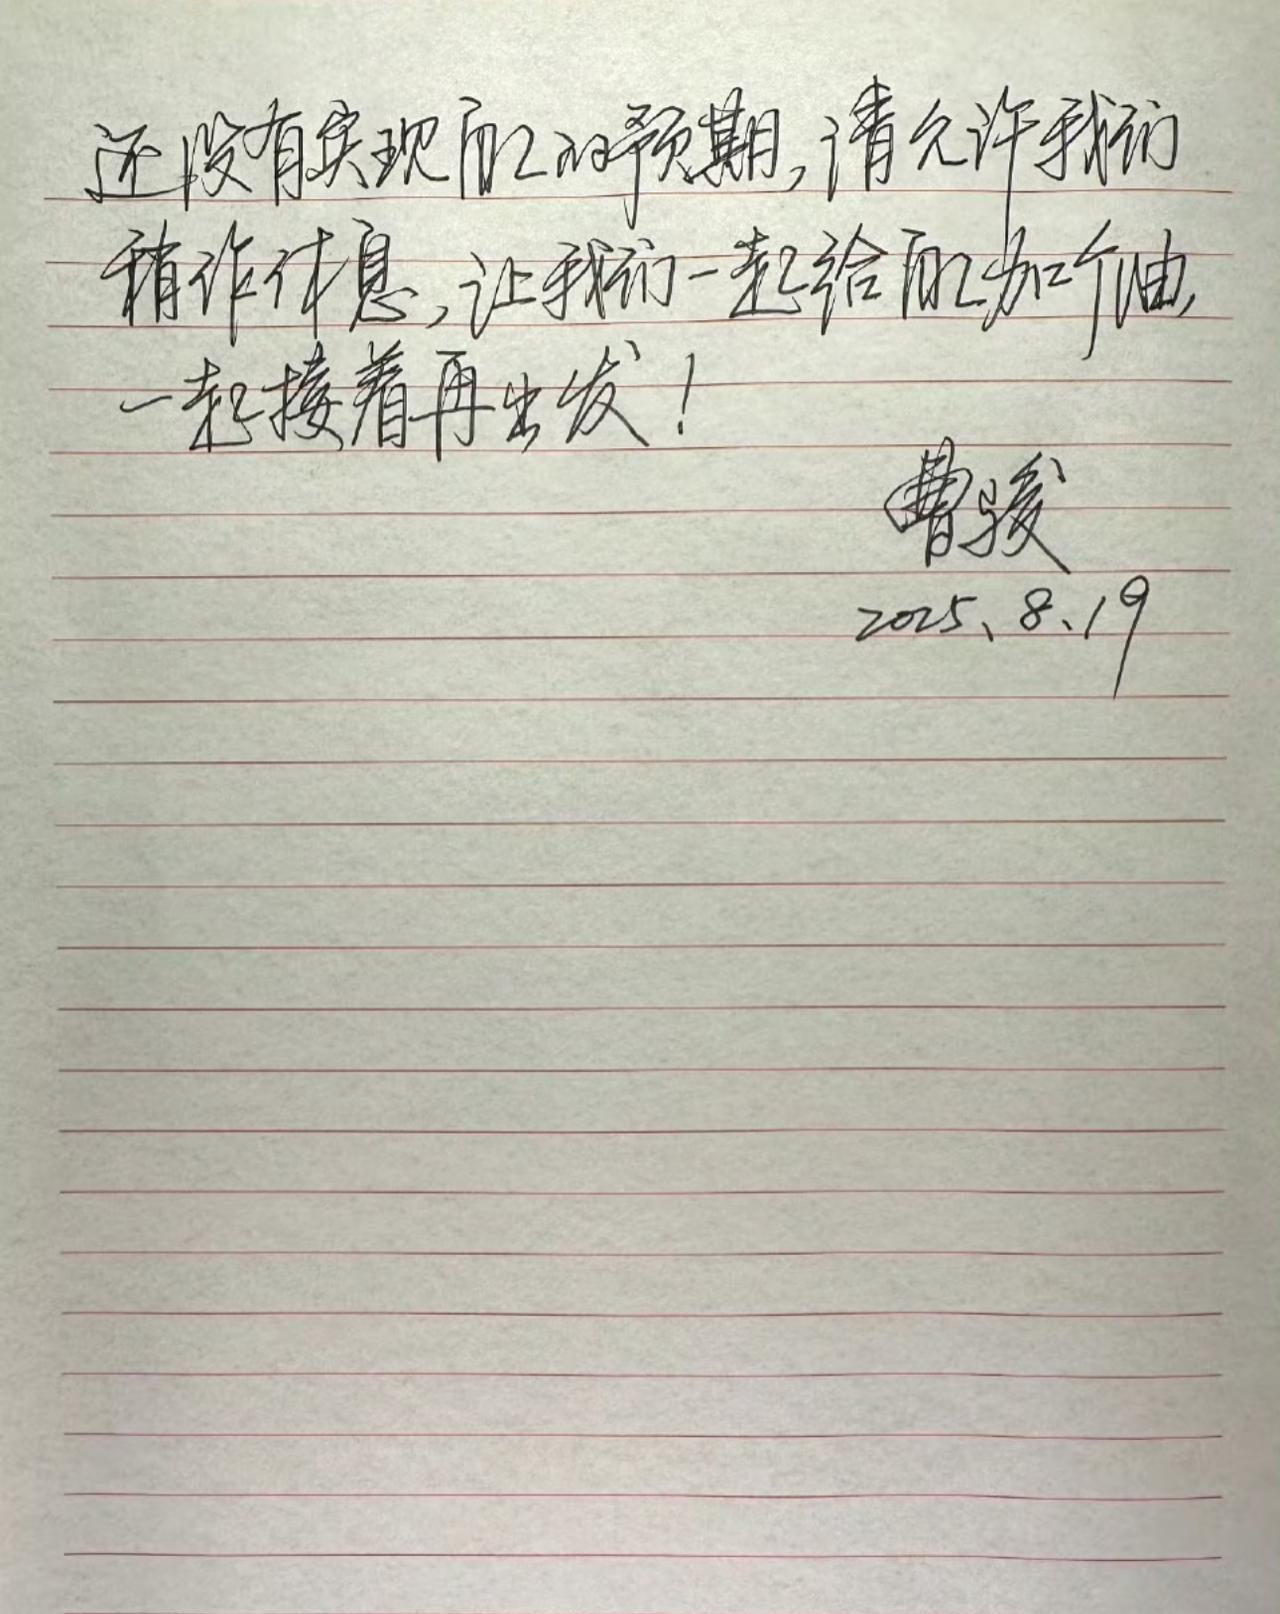 还没有实现自己的预期，请允许我们
稍作休息，让我们一起给自己加个油，
一起接着再出发！
曹骏
2025、8、19